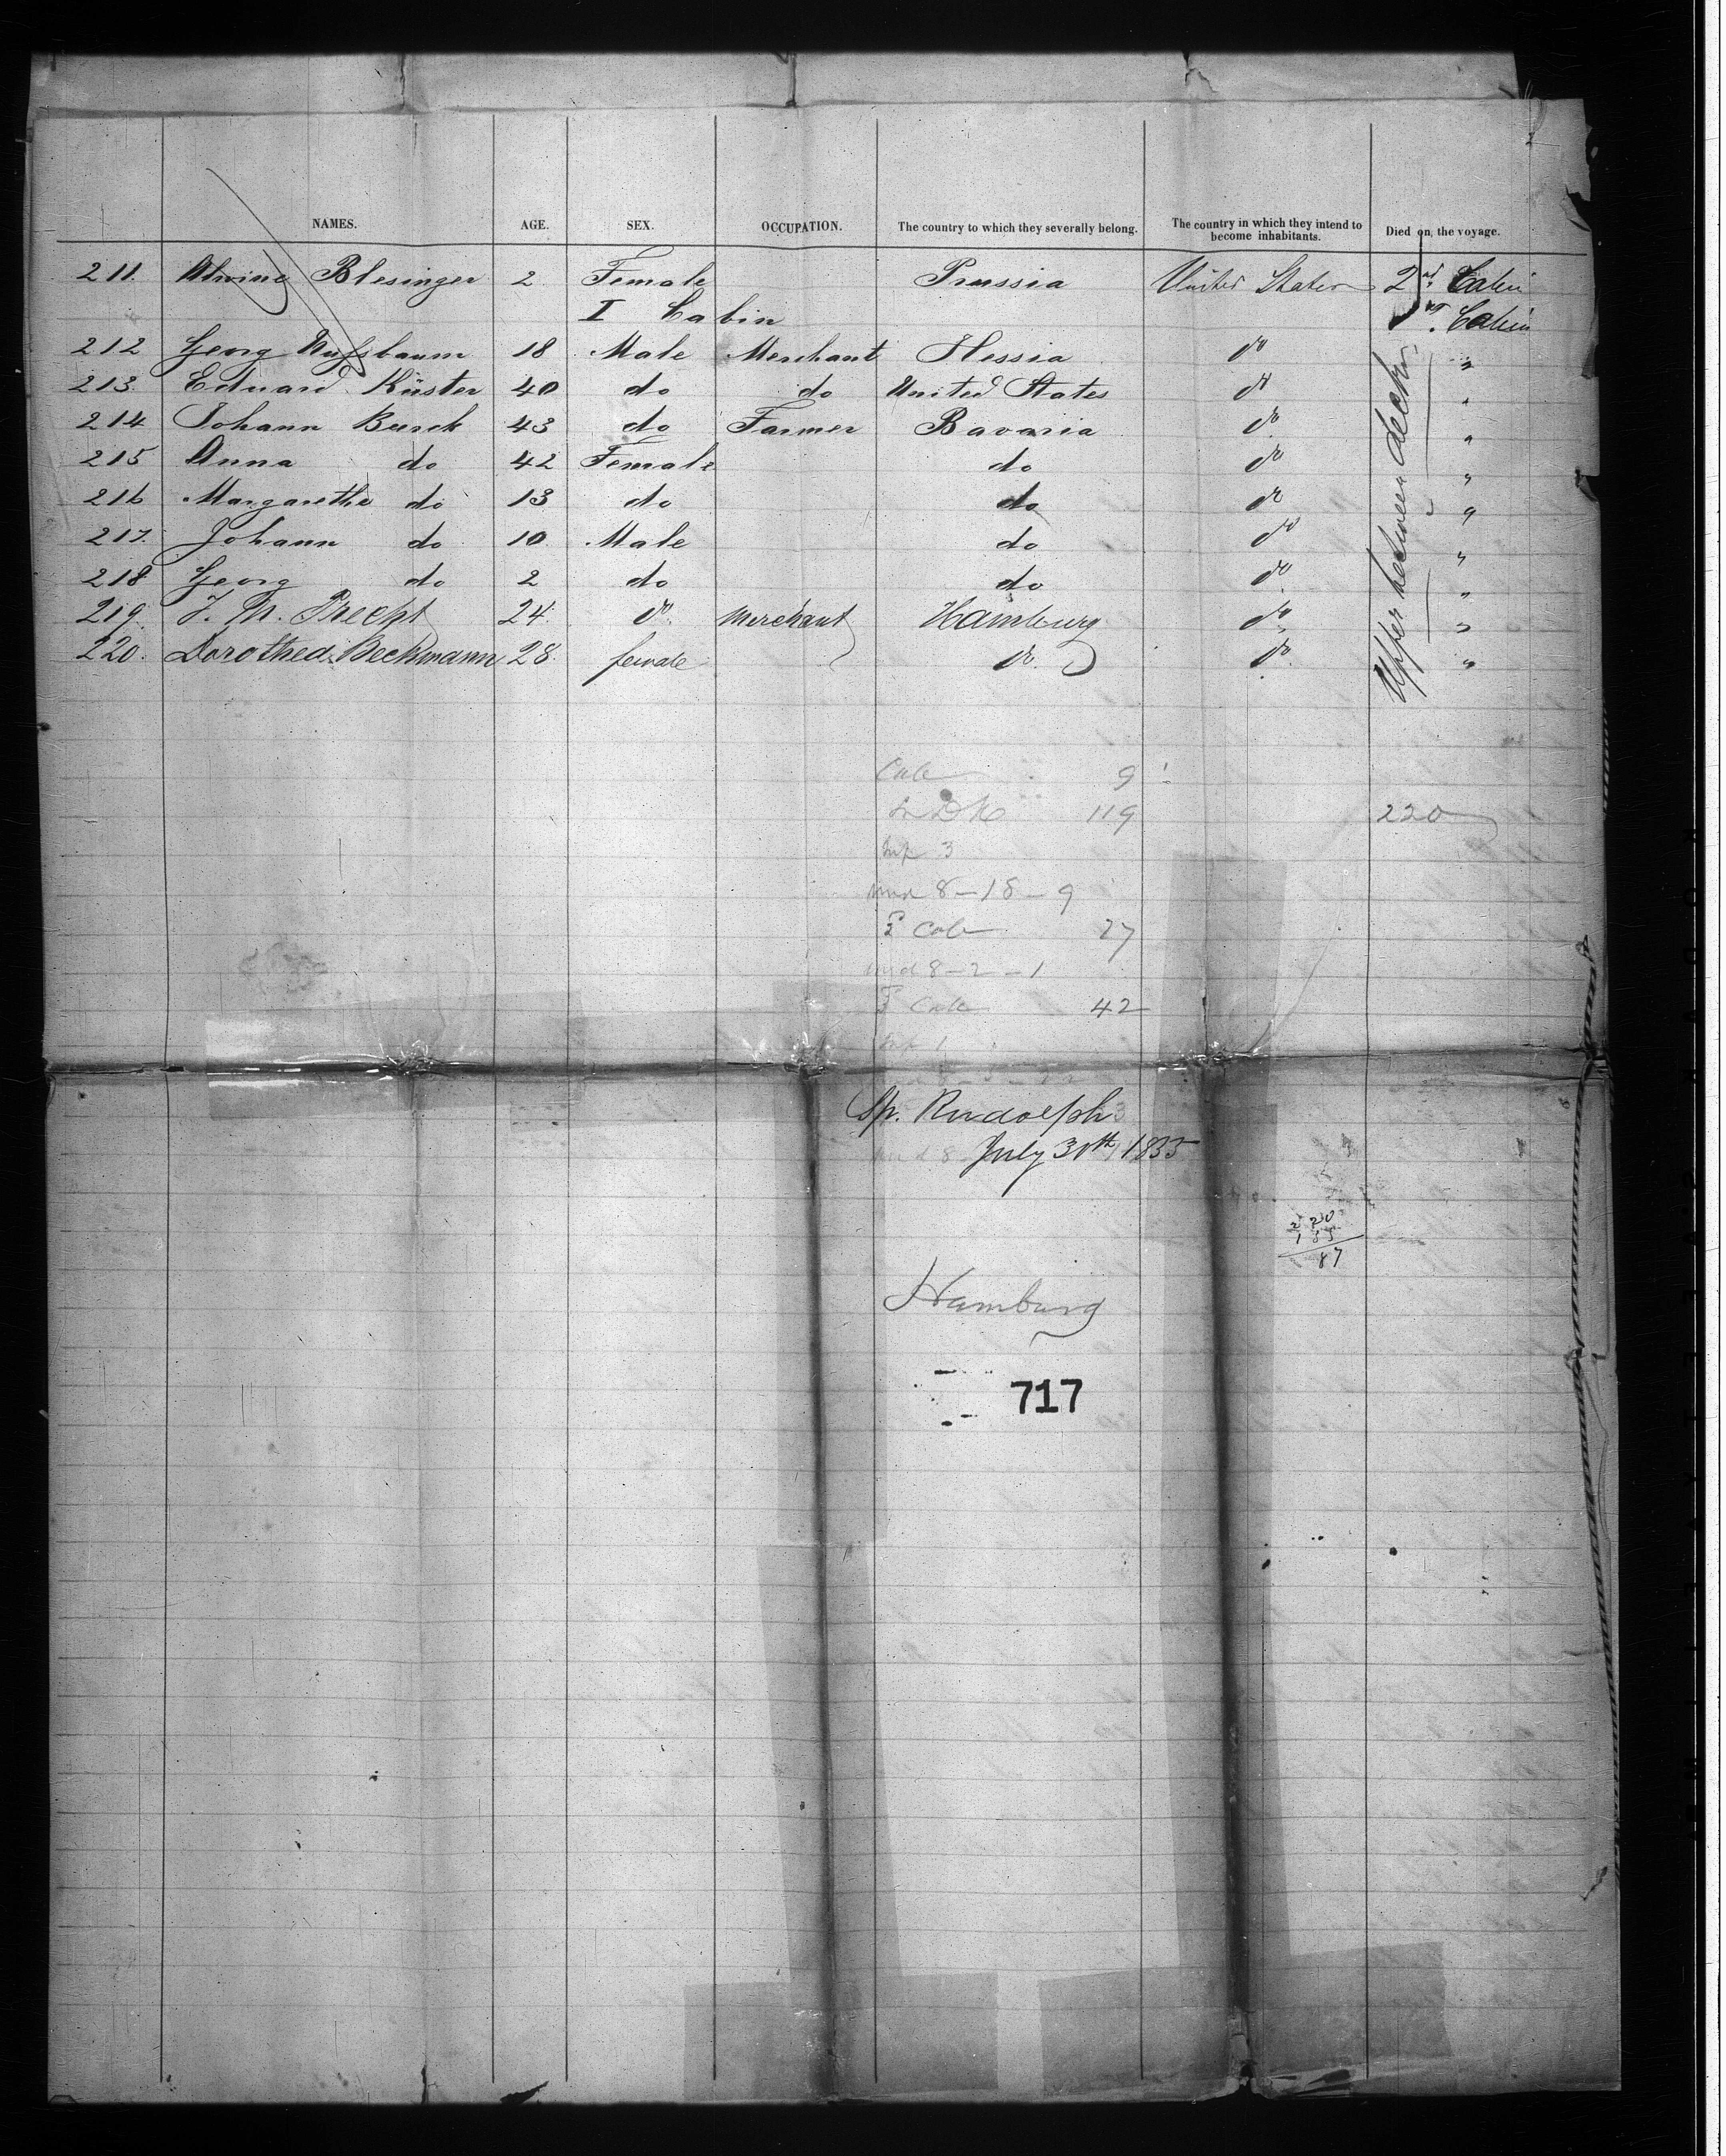 NAMES. AGE. SEX. OCCUPATION. The country to which they severally belong. The country in which they intend to become inhabitants. Died on the voyage.
211. Alwine Blesinger 2 Female Prussia United States 2nd Cabin
I Cabin 1st Cabin
212 Georg Nußbaum 18 Male Merchant Hessia do "
213. Eduard Küster 40 do do United States do "
214 Johann Burck 43 do Farmer Bavaria do "
215 Anna do 42 Female do do "
216 Margarethe do 13 do do do "
217. Johann do 10 Male do do "
218 Georg do 2 do do do "
219. J. M. Precht 24. do. Merchant Hamburg do "
220. Dorothea Beckmann 28. female do. do. "
Upper between decks
Cab 9
119 220
3
8-18-9
2 Cab 27
8-2-1
Cab 42
1
Sp. Rudolph
July 30th 1855
220
87
Hamburg
717